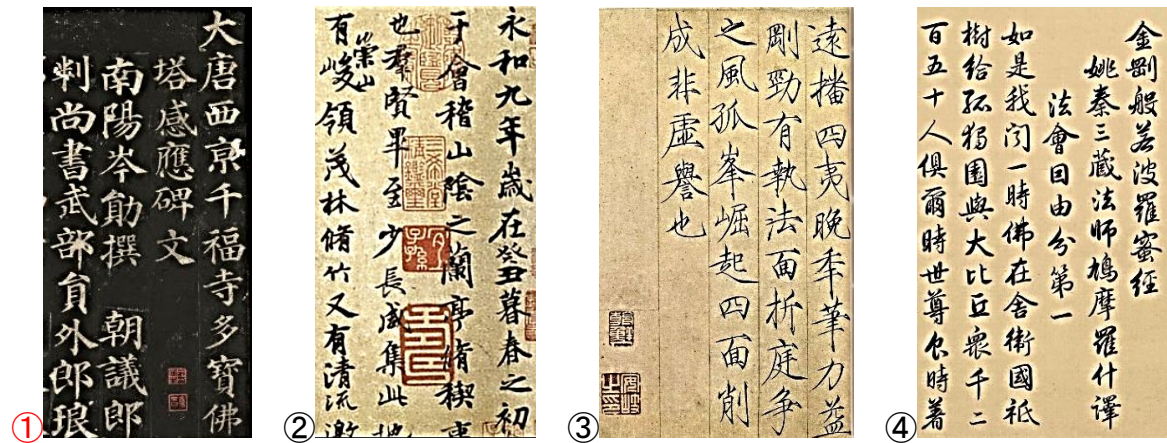 ①
大唐西京千福寺多寶佛
塔感應碑文
南陽岑勛撰 朝議郎
判尚書武部員外郎琅
②
永和九年歲在癸丑暮春之初
于會稽山陰之蘭亭脩稧事
也羣賢畢至少長咸集此地
有崇山峻領茂林脩竹又有清流激
③
遠播四夷晚秊筆力益
剛勁有執法面折庭爭
之風孤峯崛起四面削
成非虛譽也
④
金剛般若波羅蜜經
姚秦三藏法師鳩摩羅什譯
法會因由分第一
如是我聞一時佛在舍衛國祇
樹給孤獨園與大比丘衆千二
百五十人俱爾時世尊食時著